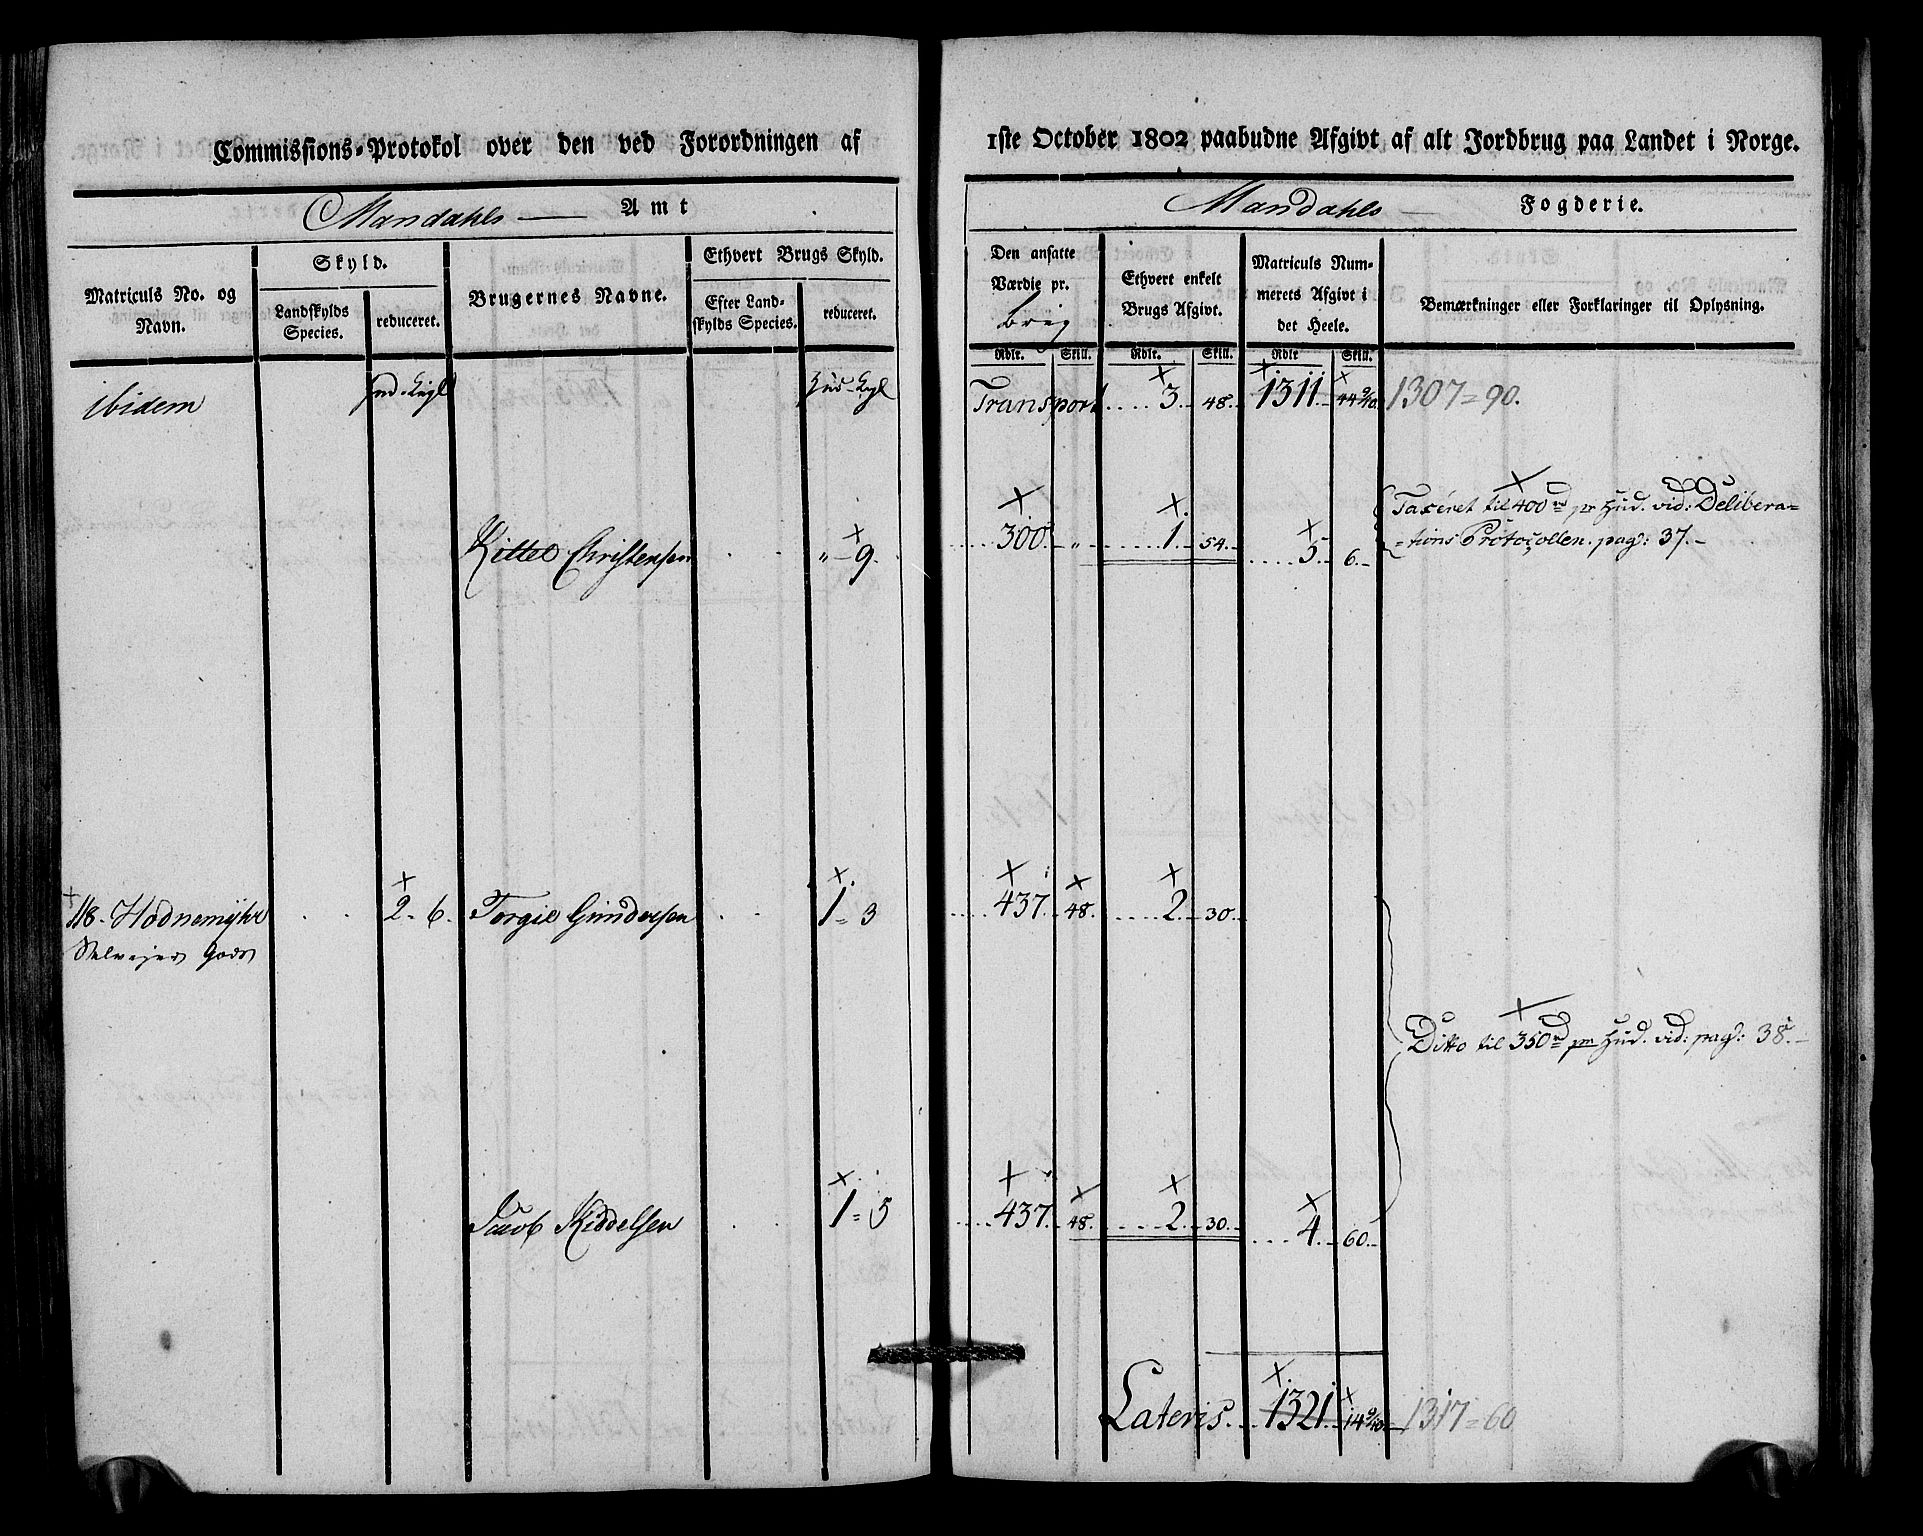 Commissions-Protokol over den ved Forordningen af
Mandahls Amt
Matriculs No. og Navn.
Skyld.
Landskylds Species.
reduceret.
Brugernes Navne.
Ethvert Brugs Skyld.
Efter Landskylds Species.
reduceret.
ibidem
Hud. Kigl
Hud. Kigl
Kittel Christensen . . " - 9.
118. Hodnemyhr . . 2. 6. Torgie Gundersen . . 1 = 3
Selvejer Gods
Jacob Kiddelsen . . 1 = 5
1ste October 1802 paabudne Afgivt af alt Jordbrug paa Landet i Norge.
Mandahls Fogderie.
Den ansatte Værdie pr.
brug
Ethvert enkelt Brugs Afgivt.
Matriculs Nummerets Afgivt i det Heele.
Bemærkninger eller Forklaringer til Oplysning.
Rdlr. Skill. Rdlr. Skill. Rdlr Skill.
Transport .... 3. 48. 1311. 44 9/10. 1307 = 90.
Taxeret til 400 rd pr Hud. vid: Delibera=
300. " 1. 54. 5. 6. =tions Protocollen. pag: 37.-
437. 48. 2. 30.
Ditto til 350 rd pr Hud. vid: pag: 38.-
437. 48. 2. 30. 4. 60.
Lateris. 1321. 14 9/10. 1317 = 60